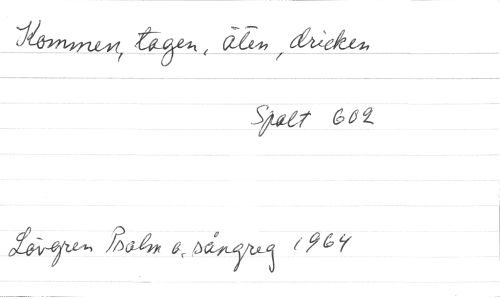 Kommen, tagen, äten, dricken
Spalt 602
Lövgren Psalm o. sångreg 1964